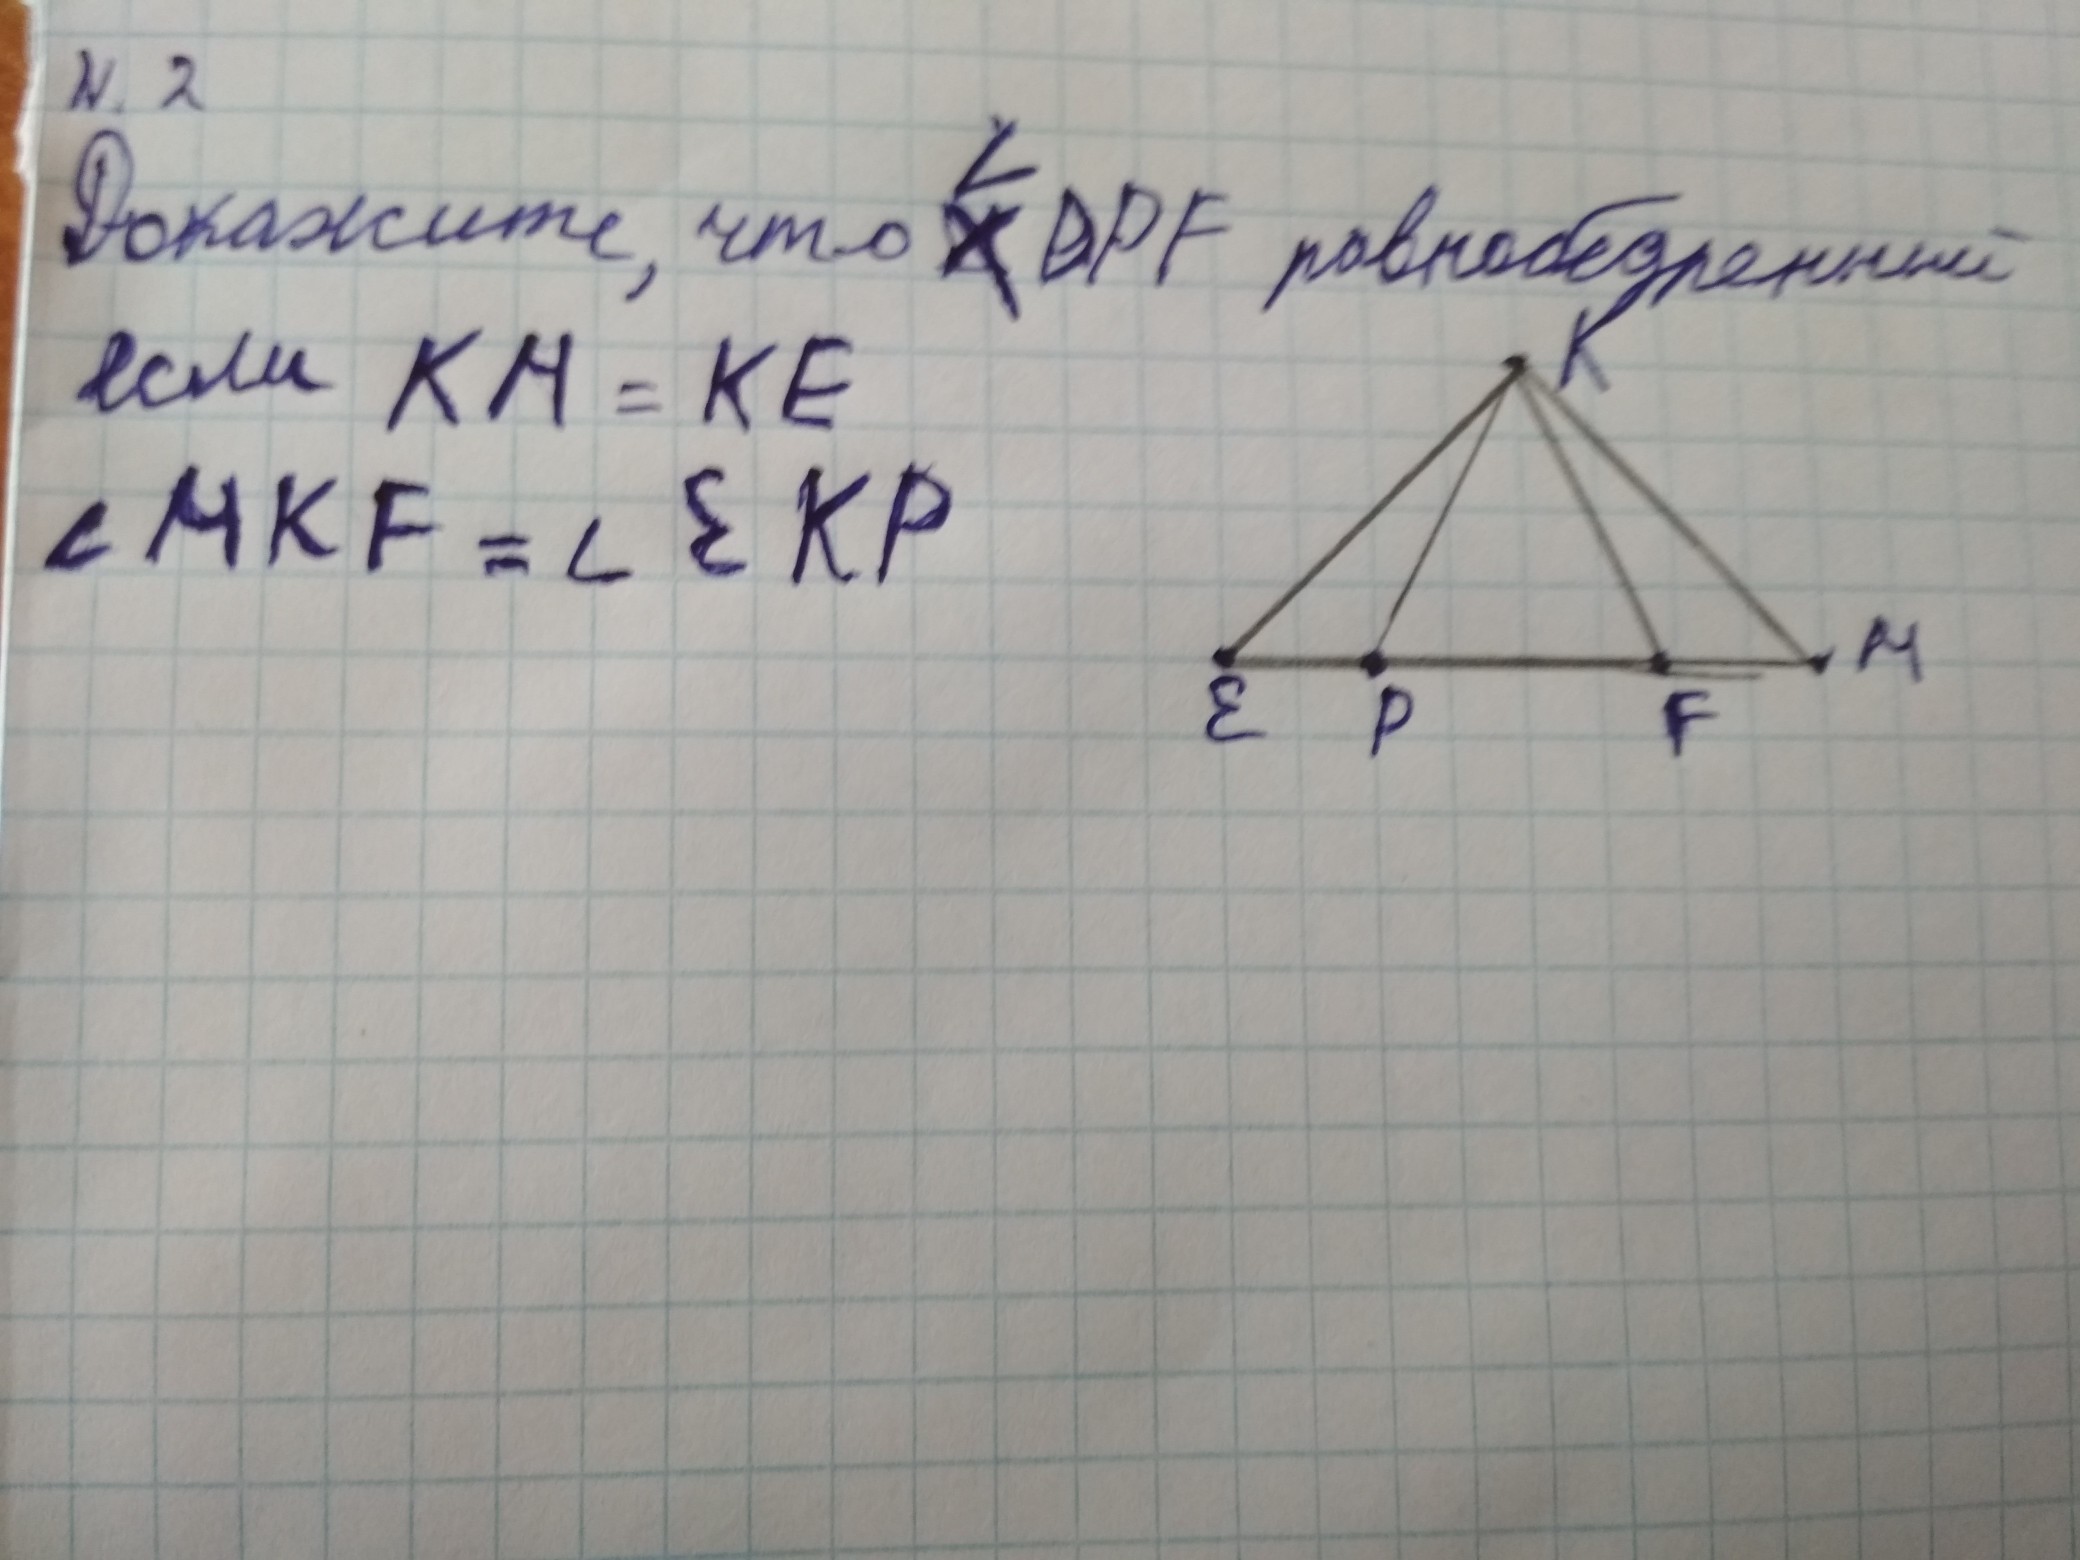 N. 2
Докажите, что ∠ DPF равнобедренный
если KM = KE
∠ MKF = ∠ EKP
K
E P F M